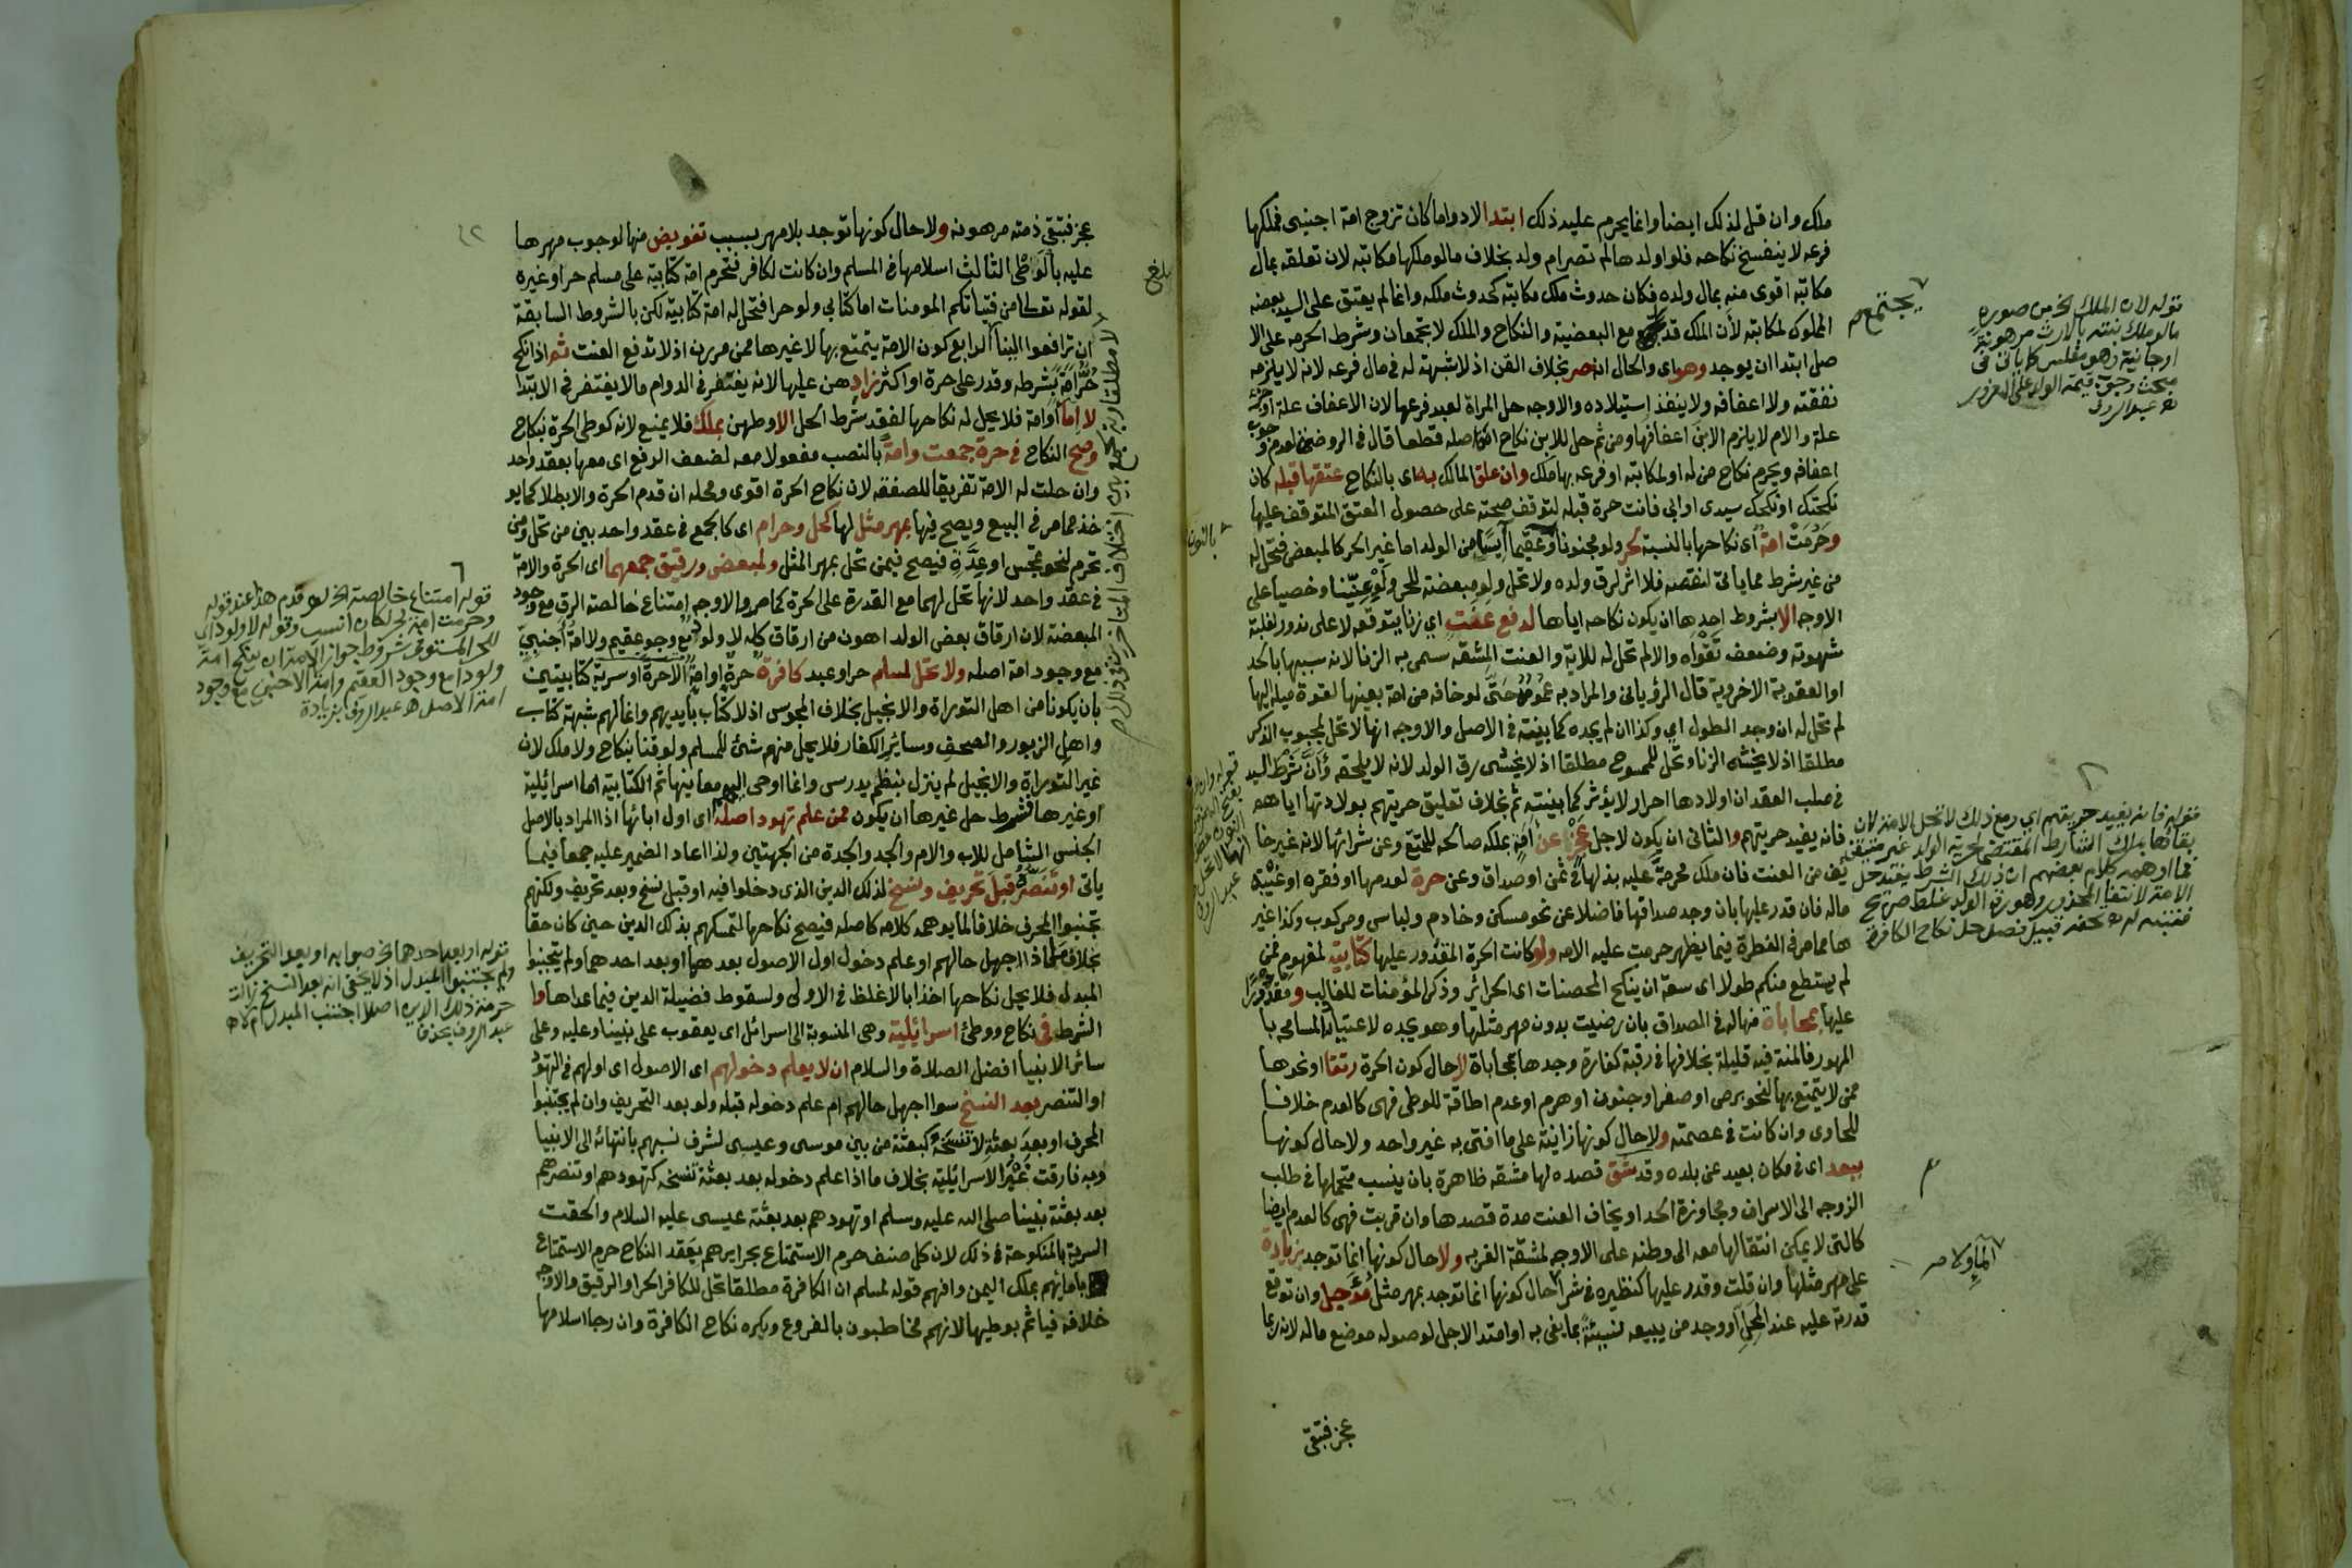 ملك وان قبل لذلك ايضا وانما يحرم عليه ذلك ابتدا لا دواما كان تزوج امة اجنبى فملكها
فرعه لا ينفسخ نكاحه فلو اولدها لم تصر ام ولد بخلاف ما لو ملكها مكاتبه لان تعلقه بمال
مكاتبه اقوى منه بمال ولده فكان حدوث ملك مكاتبه كحدوث ملكه وانما لم يعتق على السيد بعضه
المملوك لمكاتبه لأن الملك قد مع البعضية والنكاح والملك لا يجتمعان وشرط الحرمه على الا
صل ابتدا ان يوجد وهو اى والحال انه حر بخلاف القن اذ لا شبهة له فى مال فرعه لانه لا يلزمه
نفقته ولا اعفافه ولا ينفذ استيلاده والاوجه حل المراة لعبد فرعها لان الاعفاف علة او جزء
علة والام لا يلزم الابن اعفافها ومن ثم حل للابن نكاح امة اصله قطعا قال فى الروضة لعدم وجوب
اعفافه ويحرم نكاح من له او لمكاتبه او فرعه بها ملك وان علق المالك به اى بالنكاح عتقها قبله كان
نكحتك او نكحك سيدى او ابى فانت حرة قبله لتوقف صحته على حصول العتق المتوقف عليها
وحرمت امة اى نكاحها بالنسبة لحر ولو مجنونا او عقيما آيسا من الولد اما غير الحر كالمبعض فتحل له
من غير شرط مما ياتى لنقصه فلا اثر لرق ولده ولا تحل ولو مبعضة للحر ولو عنينا او خصيا على
الاوجه الا بشروط احدها ان يكون نكاحه اياها لدفع عنت اي زنا يتوقعه لا على ندور لغلبة
شهوته وضعف تقواه والا لم تحل له للاية والعنت المشقه سمى به الزنا لانه سببها بالحد
او العقوبة الاخروية قال الرويانى والمراد به عمومه حتى لو خافه من امة بعينها لقوة ميله اليها
لم تحل له ان وجد الطول اي وكذا ان لم يجده كما بينته فى الاصل والاوجه انها لا تحل لمجبوب الذكر
مطلقا اذ لا يخشى الزنا وتحل للممسوح مطلقا اذ لا يخشى رق الولد لانه لا يلحقه وأن شرط السيد
فى صلب العقد ان اولادها احرار لا يؤثر كما بينته ثم بخلاف تعليق حريتهم بولادتها اياهم
فانه يفيد حريتهم والثانى ان يكون لاجل عجز عن امة بملكه صالحه للتمتع وعن شرائها لانه غير خا
يف من العنت فان ملك محرمة عليه بذلها فى ثمن او صداق وعن حرة لعدمها او فقره او غيبة
ماله فان قدر عليها بان وجد صداقها فاضلا عن نحو مسكن وخادم ولباس ومركوب وكذا غير
ها مما مر فى الفطرة فيما يظهر حرمت عليه الامه ولو كانت الحرة المقدور عليها كتابية لمفهوم فمن
لم يستطع منكم طولا اى سعة ان ينكح المحصنات اى الحراير وذكر المؤمنات للغالب و
عليها بمحاباة منها له فى الصداق بان رضيت بدون مهر مثلها وهو يجده لاعتياد المسامحه با
المهور فالمنة فيه قليلة بخلافها فى رقبة كفارة وجدها بمحاباة لا حال كون الحرة رتقا او نحوها
ممن لا يتمتع بها لنحو برص او صغر او جنون او هرم او عدم اطاقة للوطى فهى كالعدم خلافا
للحاوى وان كانت فى عصمته ولا حال كونها زانية على ما افتى به غير واحد ولا حال كونها
ببعد اى فى مكان بعيد عن بلده وقد شق قصده لها مشقه ظاهرة بان ينسب متحملها فى طلب
الزوجه الى الاسراف ومجاوزة الحد او يخاف العنت مدة قصدها وان قربت فهى كالعدم ايضا
كالتى لا يمكن انتقالها معه الى وطنه على الاوجه لمشقة الغربه ولا حال كونها انما توجد بزيادة
على مهر مثلها وان قلت وقدر عليها كنظيره فى شرا حال كونها انما توجد بمهر مثل مؤجل وان توقع
قدرته عليه عند المحل او وجد من يبيعه نسيئة بما يفى به او امتد الاجل لوصوله موضع ماله لانه ربما
عجز فتبقى
يجتمع صح
قوله لان الملك الخ من صوره
ما لو ملك بنته بالارث مرهونة
او جانية وهو مفلس كما ياتى فى
مبحث وجوب قيمة الولد على المغرور
اه عبد الروف
بالنون
قوله فانه يفيد حريتهم اي ومع ذلك لا تحل الامة لان
الامة لانتفا المحذور وهو رق الولد غلط صريح
فتنبه له اه تحفه قبيل فصل حل نكاح الكافرة
عجز فتبقى ذمته مرهونه ولا حال كونها توجد بلا مهر بسبب تفويض منها لوجوب مهرها
عليه بالوطى الثالث اسلامها فى المسلم وان كانت لكافر فتحرم امة كتابية على مسلم حر او غيره
لقوله تعالى من فتياتكم المومنات اما كتابي ولو حرا فتحل له امة كتابية لكن بالشروط السابقة
ان ترافعوا الينا الرابع كون الامة يتمتع بها لا غيرها ممن مر بهن اذ لا تدفع العنت ثم اذا نكح
حر امة بشرطه وقدر على حرة او اكثر زاد هن عليها لانه يغتفر فى الدوام ما لا يغتفر فى الابتدا
لا اما او امة فلا يحل له نكاحها لفقد شرط الحل الا وطهن بملك فلا يمنع لانه كوطى الحرة بنكاح
وصح النكاح فى حرة جمعت وامة بالنصب مفعولا معه لضعف الرفع اى معها بعقد واحد
وان حلت له الامة تفريقا للصفقه لان نكاح الحرة اقوى ومحله ان قدم الحرة والا بطلا كما يو
خذ مما مر فى البيع ويصح فيها بمهر مثل لها كحل وحرام اى كالجمع فى عقد واحد بين من تحل ومن
تحرم لنحو تمجس او عدة فيصح فيمن تحل بمهر المثل ولمبعض ورقيق جمعهما اى الحرة والامة
فى عقد واحد لانها تحل لهما مع القدرة على الحرة كما مر والاوجه امتناع خالصة الرق مع وجود
المبعضة لان ارقاق بعض الولد اهون من ارقاق كله لا ولود مع وجود عقيم ولا امة اجنبى
مع وجود امة اصله ولا تحل لمسلم حر او عبد كافرة حرة او امة الا حرة او سرية كتابيتين
بان يكونا من اهل التوراة والانجيل بخلاف المجوس اذ لا كتاب بايديهم وانما لهم شبهة كتاب
واهل الزبور والصحف وساير الكفار فلا يحل منهم شئ للمسلم ولو قنا بنكاح ولا ملك لان
غير التوراة والانجيل لم ينزل بنظم يدرس وانما اوحى اليهم معانيها ثم الكتابية اما اسرائلية
او غيرها فشرط حل غيرها ان يكون ممن علم تهود اصله اى اول ابائها اذ المراد بالاصل
الجنس الشامل للاب والام والجد والجدة من الجهتين ولذا اعاد الضمير عليه جمعا فيما
ياتى او تنصره قبل تحريف ونسخ لذلك الدين الذى دخلوا فيه او قبل نسخ وبعد تحريف ولكنهم
تجنبوا المحرف خلافا لما يوهمه كلامه كاصله فيصح نكاحها لتمسكهم بذلك الدين حين كان حقا
بخلاف ما اذا جهل حالهم او علم دخول اول الاصول بعدهما او بعد احدهما ولم يتجنبوا
المبدل فلا يحل نكاحها اخذا بالاغلظ فى الاولى ولسقوط فضيلة الدين فيما عداها وا
الشرط فى نكاح ووطئ اسرائلية وهى المنسوبة الى اسرائل اى يعقوب على نبينا وعليه وعلى
سائر الانبيا افضل الصلاة والسلام ان لا يعلم دخولهم اى الاصول اى اولهم فى التهود
او التنصر بعد النسخ سوا اجهل حالهم ام علم دخوله قبله ولو بعد التحريف وان لم يجتنبوا
المحرف او بعد بعثة لا تنسخه كبعثة من بين موسى وعيسى لشرف نسبهم بانتهائه الى الانبيا
وبه فارقت غير الاسرائلية بخلاف ما اذا علم دخوله بعد بعثة تنسخه كتهودهم او تنصرهم
بعد بعثة نبينا صلى الله عليه وسلم او تهودهم بعد بعثة عيسى عليه السلام والحقت
السرية بالمنكوحة فى ذلك لان كل صنف حرم الاستمتاع بحرايرهم بعقد النكاح حرم الاستمتاع
بامايهم بملك اليمن وافهم قوله لمسلم ان الكافرة مطلقا تحل للكافر الحر او الرقيق والاوجه
خلافه فياثم بوطيها لانهم مخاطبون بالفروع ويكره نكاح الكافرة وان رجا اسلامها
بلغ
قوله امتناع خالصة الخ لو قدم هذا عند قوله
وحرمت امة لحر لكان انسب وقوله لا ولود اي
للحر المستوفى شروط جواز الامة ان ينكح امة
ولودا مع وجود العقيم وامة الاجنبى مع وجود
امة الاصل اه عبد الروف بزيادة
قوله او بعد احدهما الخ صوابه او بعد التحريف
ولم يجتنبوا المبدل اذ لا يخفى انه بعد النسخ زالت
حرمة ذلك الدين اصلا اجتنب المبدل ام لا اه
عبد الروف بحذف